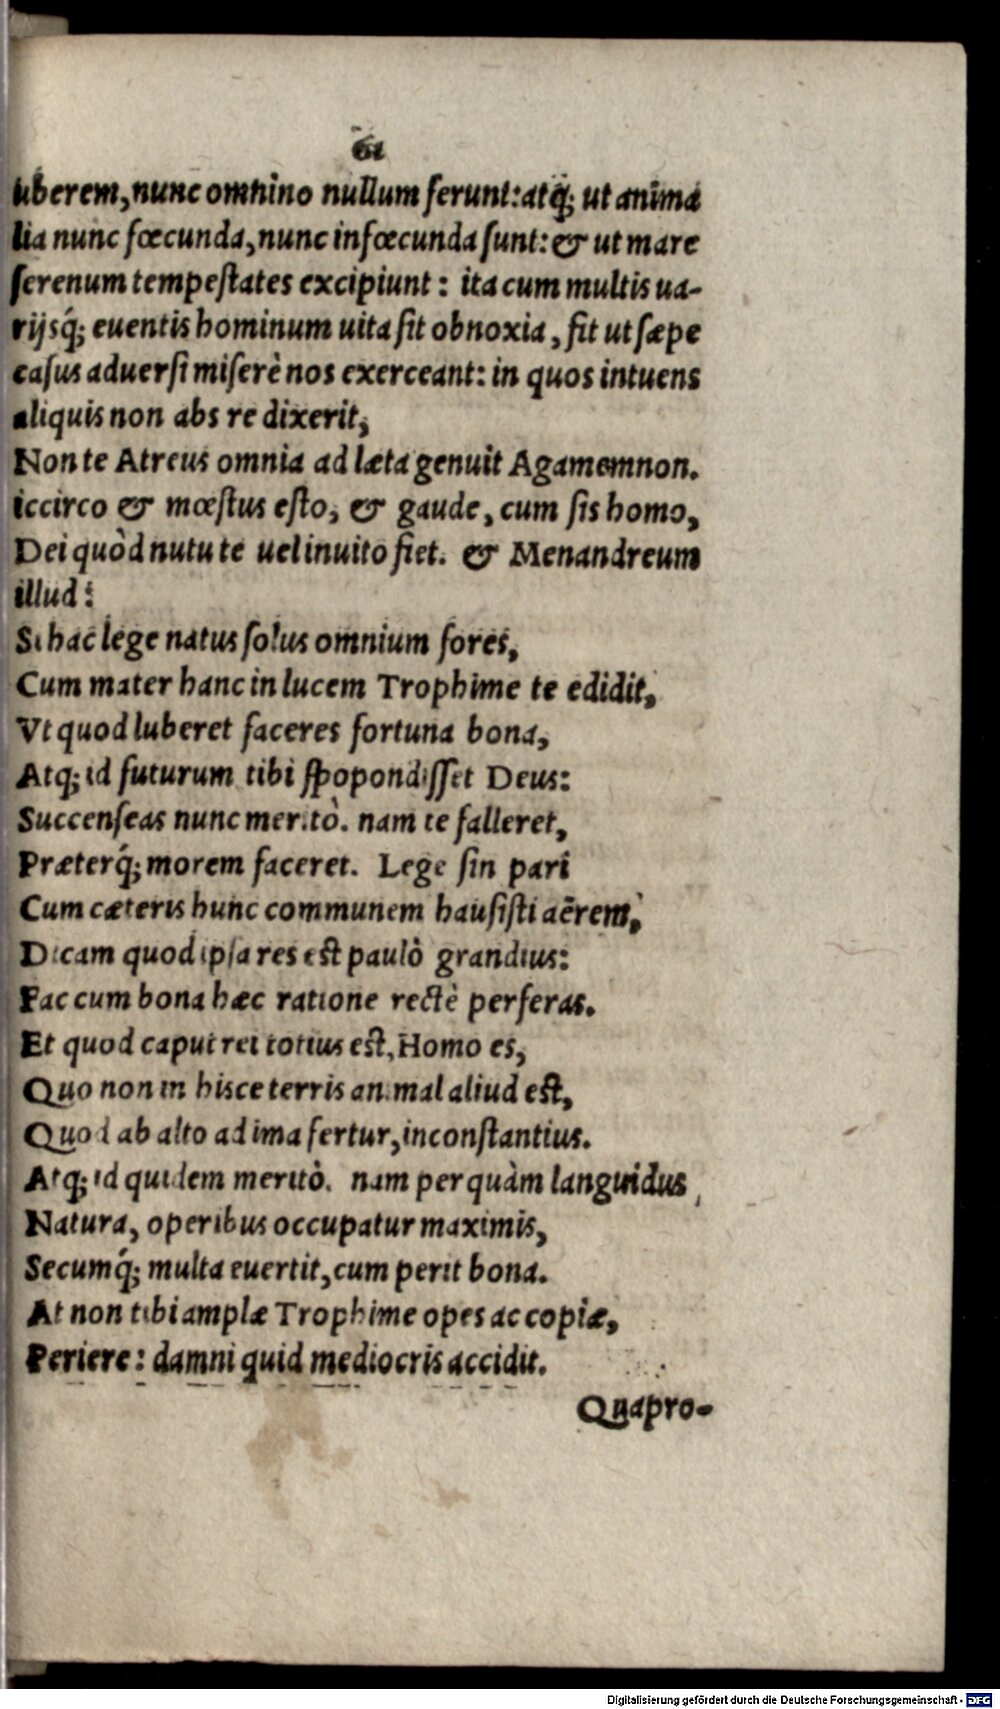 61
uberem, nunc omnino nullum ferunt: atq́; ut anima
lia nunc fœcunda, nunc infœcunda ſunt: & ut mare
ſerenum tempeſtates excipiunt: ita cum multis ua-
rijsq́; euentis hominum uita ſit obnoxia, fit ut ſæpe
caſus aduerſi miſerè nos exerceant: in quos intuens
aliquis non abs re dixerit,
Non te Atreus omnia ad læta genuit Agamemnon.
iccirco & mœſtus eſto, & gaude, cum ſis homo,
Dei quòd nutu te uel inuito fiet. & Menandreum
illud:
Si hac lege natus ſolus omnium fores,
Cum mater hanc in lucem Trophime te edidit,
Vt quod luberet faceres fortuna bona,
Atq; id futurum tibi ſpopondiſſet Deus:
Succenſeas nunc meritò. nam te falleret,
Præterq́; morem faceret. Lege ſin pari
Cum cæteris hunc communem hauſiſti aërem,
Dicam quod ipſa res eſt paulò grandius:
Fac cum bona hæc ratione rectè perferas.
Et quod caput rei totius eſt, Homo es,
Quo non in hiſce terris animal aliud eſt,
Quod ab alto ad ima fertur, inconſtantius.
Atq; id quidem meritò. nam perquàm languidus
Natura, operibus occupatur maximis,
Secumq́; multa euertit, cum perit bona.
At non tibi amplæ Trophime opes ac copiæ,
Periere: damni quid mediocris accidit.
Quapro-
Digitalisierung gefördert durch die Deutsche Forschungsgemeinschaft - DFG